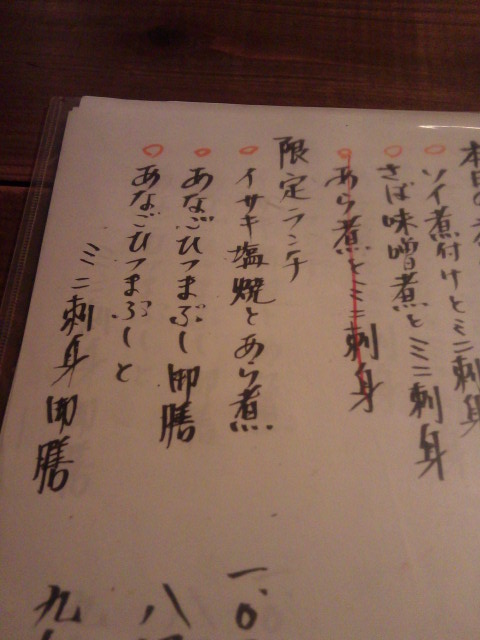 本日の
ソイ煮付けとミニ刺身
さば味噌煮とミニ刺身
あら煮とミニ刺身
限定ランチ
イサキ塩焼とあら煮 一、〇
あなごひつまぶし御膳 八
あなごひつまぶしと
ミニ刺身御膳 九